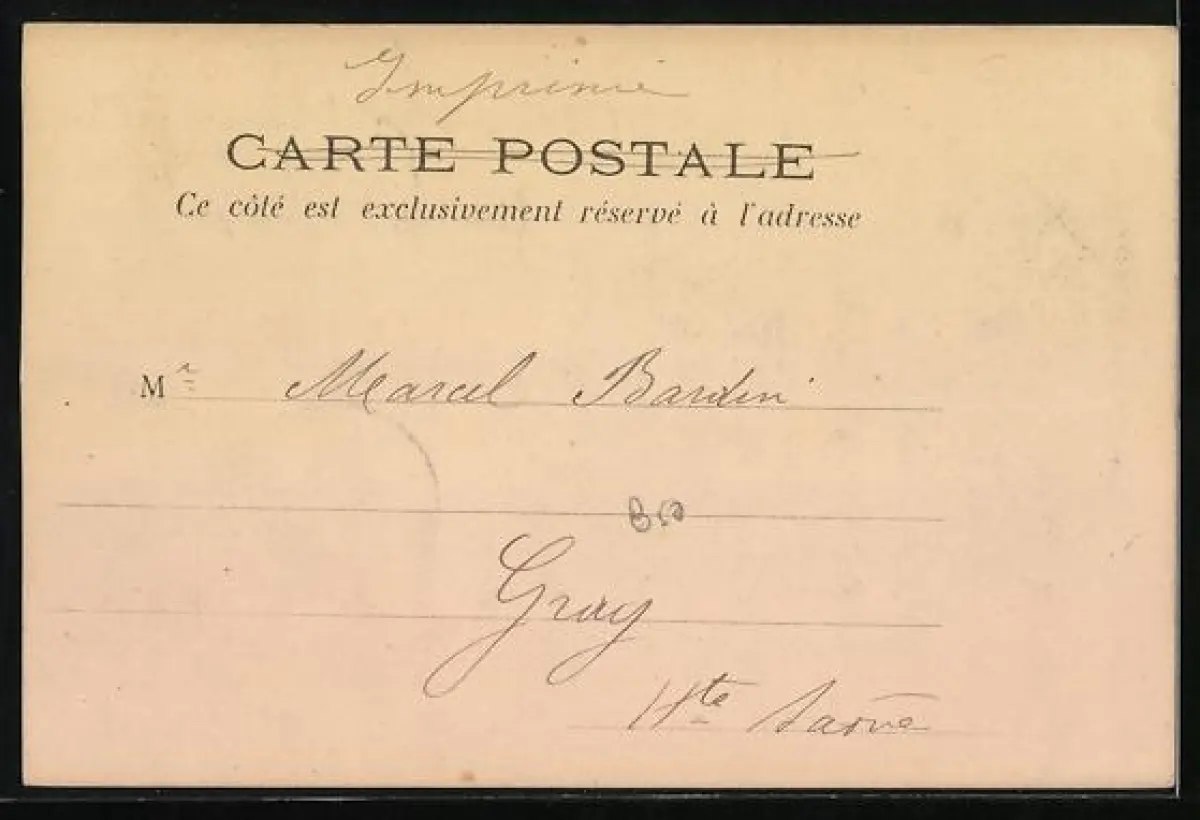 Imprimé
CARTE POSTALE
Ce côté est exclusivement réservé à l'adresse
Mr Marcel Bardin
B50
Gray
Hte Saône